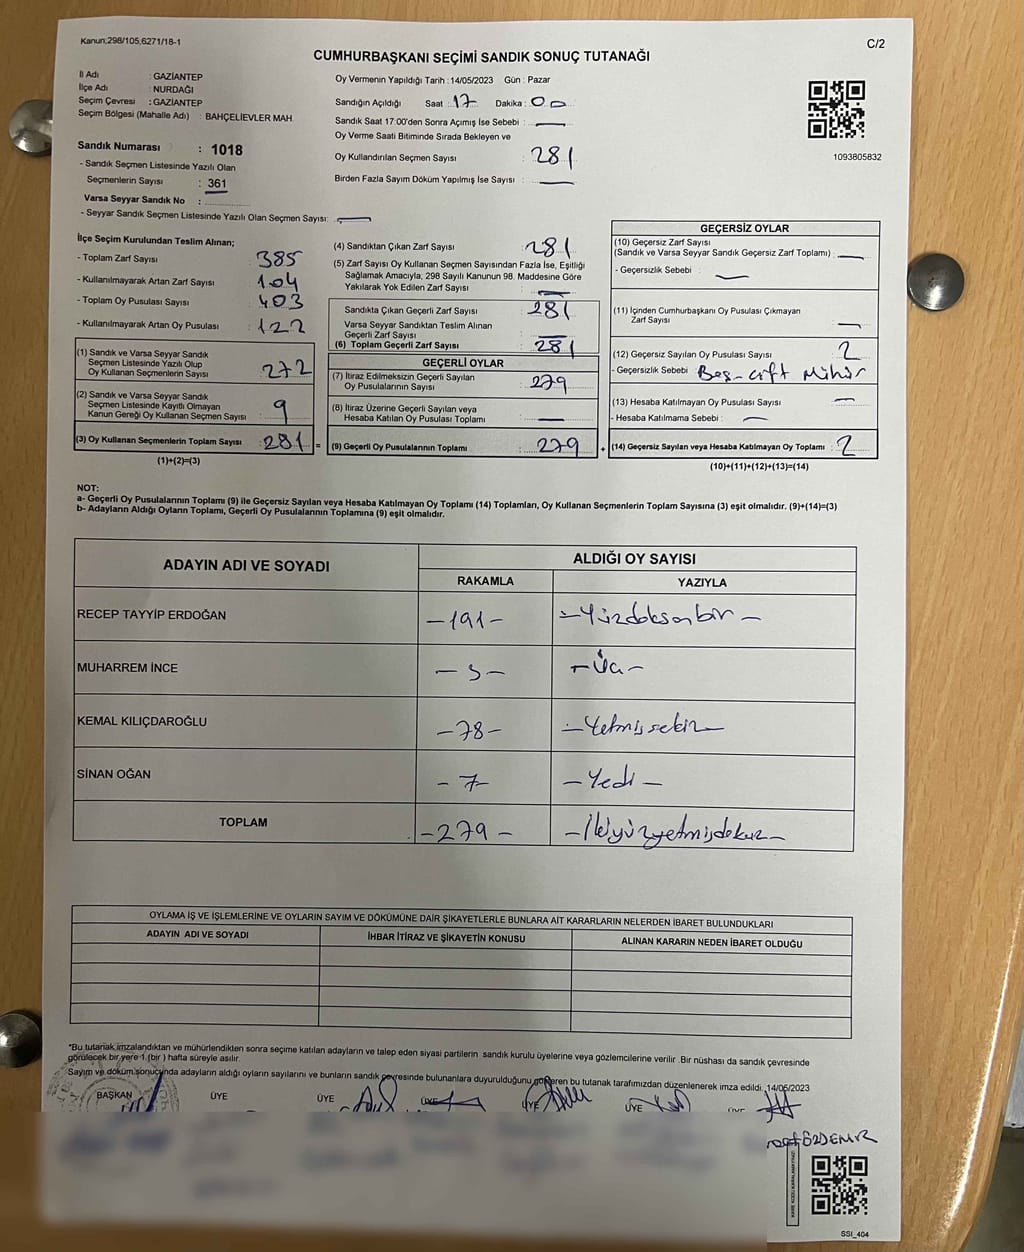 Kanun;298/105,6271/18-1
C/2
CUMHURBAŞKANI SEÇİMİ SANDIK SONUÇ TUTANAĞI
İl Adı : GAZİANTEP
İlçe Adı : NURDAĞI
Seçim Çevresi : GAZİANTEP
Seçim Bölgesi (Mahalle Adı) : BAHÇELİEVLER MAH.
Sandık Numarası : 1018
- Sandık Seçmen Listesinde Yazılı Olan
Seçmenlerin Sayısı : 361
Varsa Seyyar Sandık No :
- Seyyar Sandık Seçmen Listesinde Yazılı Olan Seçmen Sayısı: —
Oy Vermenin Yapıldığı Tarih : 14/05/2023 Gün : Pazar
Sandığın Açıldığı Saat : 17 Dakika : 00
Sandık Saat 17:00'den Sonra Açımış İse Sebebi : —
Oy Verme Saati Bitiminde Sırada Bekleyen ve
Oy Kullandırılan Seçmen Sayısı : 281
Birden Fazla Sayım Döküm Yapılmış İse Sayısı : —
1093805832
İlçe Seçim Kurulundan Teslim Alınan;
- Toplam Zarf Sayısı : 385
- Kullanılmayarak Artan Zarf Sayısı : 104
- Toplam Oy Pusulası Sayısı : 403
- Kullanılmayarak Artan Oy Pusulası : 122
(1) Sandık ve Varsa Seyyar Sandık
Seçmen Listesinde Yazılı Olup
Oy Kullanan Seçmenlerin Sayısı : 272
(2) Sandık ve Varsa Seyyar Sandık
Seçmen Listesinde Kayıtlı Olmayan
Kanun Gereği Oy Kullanan Seçmen Sayısı : 9
(3) Oy Kullanan Seçmenlerin Toplam Sayısı : 281 =
(1)+(2)=(3)
(4) Sandıktan Çıkan Zarf Sayısı : 281
(5) Zarf Sayısı Oy Kullanan Seçmen Sayısından Fazla İse, Eşitliği
Sağlamak Amacıyla, 298 Sayılı Kanunun 98. Maddesine Göre
Yakılarak Yok Edilen Zarf Sayısı : —
Sandıkta Çıkan Geçerli Zarf Sayısı : 281
Varsa Seyyar Sandıktan Teslim Alınan
Geçerli Zarf Sayısı : —
(6) Toplam Geçerli Zarf Sayısı : 281
GEÇERLİ OYLAR
(7) İtiraz Edilmeksizin Geçerli Sayılan
Oy Pusulalarının Sayısı : 279
(8) İtiraz Üzerine Geçerli Sayılan veya
Hesaba Katılan Oy Pusulası Toplamı : —
(9) Geçerli Oy Pusulalarının Toplamı : 279 +
GEÇERSİZ OYLAR
(10) Geçersiz Zarf Sayısı
(Sandık ve Varsa Seyyar Sandık Geçersiz Zarf Toplamı) : —
- Geçersizlik Sebebi : —
(11) İçinden Cumhurbaşkanı Oy Pusulası Çıkmayan
Zarf Sayısı : —
(12) Geçersiz Sayılan Oy Pusulası Sayısı : 2
- Geçersizlik Sebebi : Boş-çift Mühür
(13) Hesaba Katılmayan Oy Pusulası Sayısı : —
- Hesaba Katılmama Sebebi : —
(14) Geçersiz Sayılan veya Hesaba Katılmayan Oy Toplamı : 2
(10)+(11)+(12)+(13)=(14)
NOT:
a- Geçerli Oy Pusulalarının Toplamı (9) ile Geçersiz Sayılan veya Hesaba Katılmayan Oy Toplamı (14) Toplamları, Oy Kullanan Seçmenlerin Toplam Sayısına (3) eşit olmalıdır. (9)+(14)=(3)
b- Adayların Aldığı Oyların Toplamı, Geçerli Oy Pusulalarının Toplamına (9) eşit olmalıdır.
ADAYIN ADI VE SOYADI ALDIĞI OY SAYISI
RAKAMLA YAZIYLA
RECEP TAYYİP ERDOĞAN -191- -Yüzdoksanbir-
MUHARREM İNCE -3- -Üç-
KEMAL KILIÇDAROĞLU -78- -Yetmişsekiz-
SİNAN OĞAN -7- -Yedi-
TOPLAM -279- -İkiyüzyetmişdokuz-
OYLAMA İŞ VE İŞLEMLERİNE VE OYLARIN SAYIM VE DÖKÜMÜNE DAİR ŞİKAYETLERLE BUNLARA AİT KARARLARIN NELERDEN İBARET BULUNDUKLARI
ADAYIN ADI VE SOYADI İHBAR İTİRAZ VE ŞİKAYETİN KONUSU ALINAN KARARIN NEDEN İBARET OLDUĞU
*Bu tutanak imzalandıktan ve mühürlendikten sonra seçime katılan adayların ve talep eden siyasi partilerin sandık kurulu üyelerine veya gözlemcilerine verilir .Bir nüshası da sandık çevresinde
görülecek bir yere 1 (bir ) hafta süreyle asılır.
Sayım ve döküm sonucunda adayların aldığı oyların sayılarını ve bunların sandık çevresinde bulunanlara duyurulduğunu gösteren bu tutanak tarafımızdan düzenlenerek imza edildi. 14/05/2023
BAŞKAN ÜYE ÜYE ÜYE ÜYE ÜYE ÜYE
ÖZDEMİR
KARE KODU KARALAMAYINIZ!
SSI_404